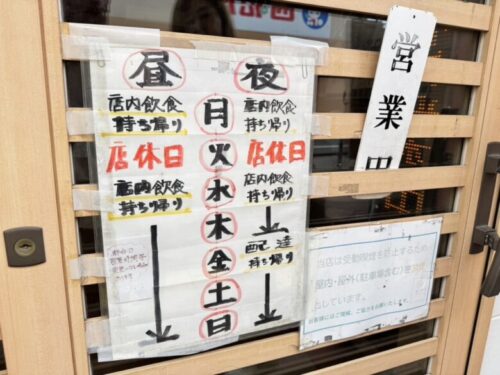 昼 夜
店内飲食 月 店内飲食
持ち帰り 持ち帰り
店休日 火 店休日
店内飲食 水 店内飲食
持ち帰り 持ち帰り
木
配達
金 持ち帰り
土
日
営業中
当店は受動喫煙を防止するため
屋内・屋外(駐車場含む)
としています。
お客様にはご理解、ご協力をお願いいたします。